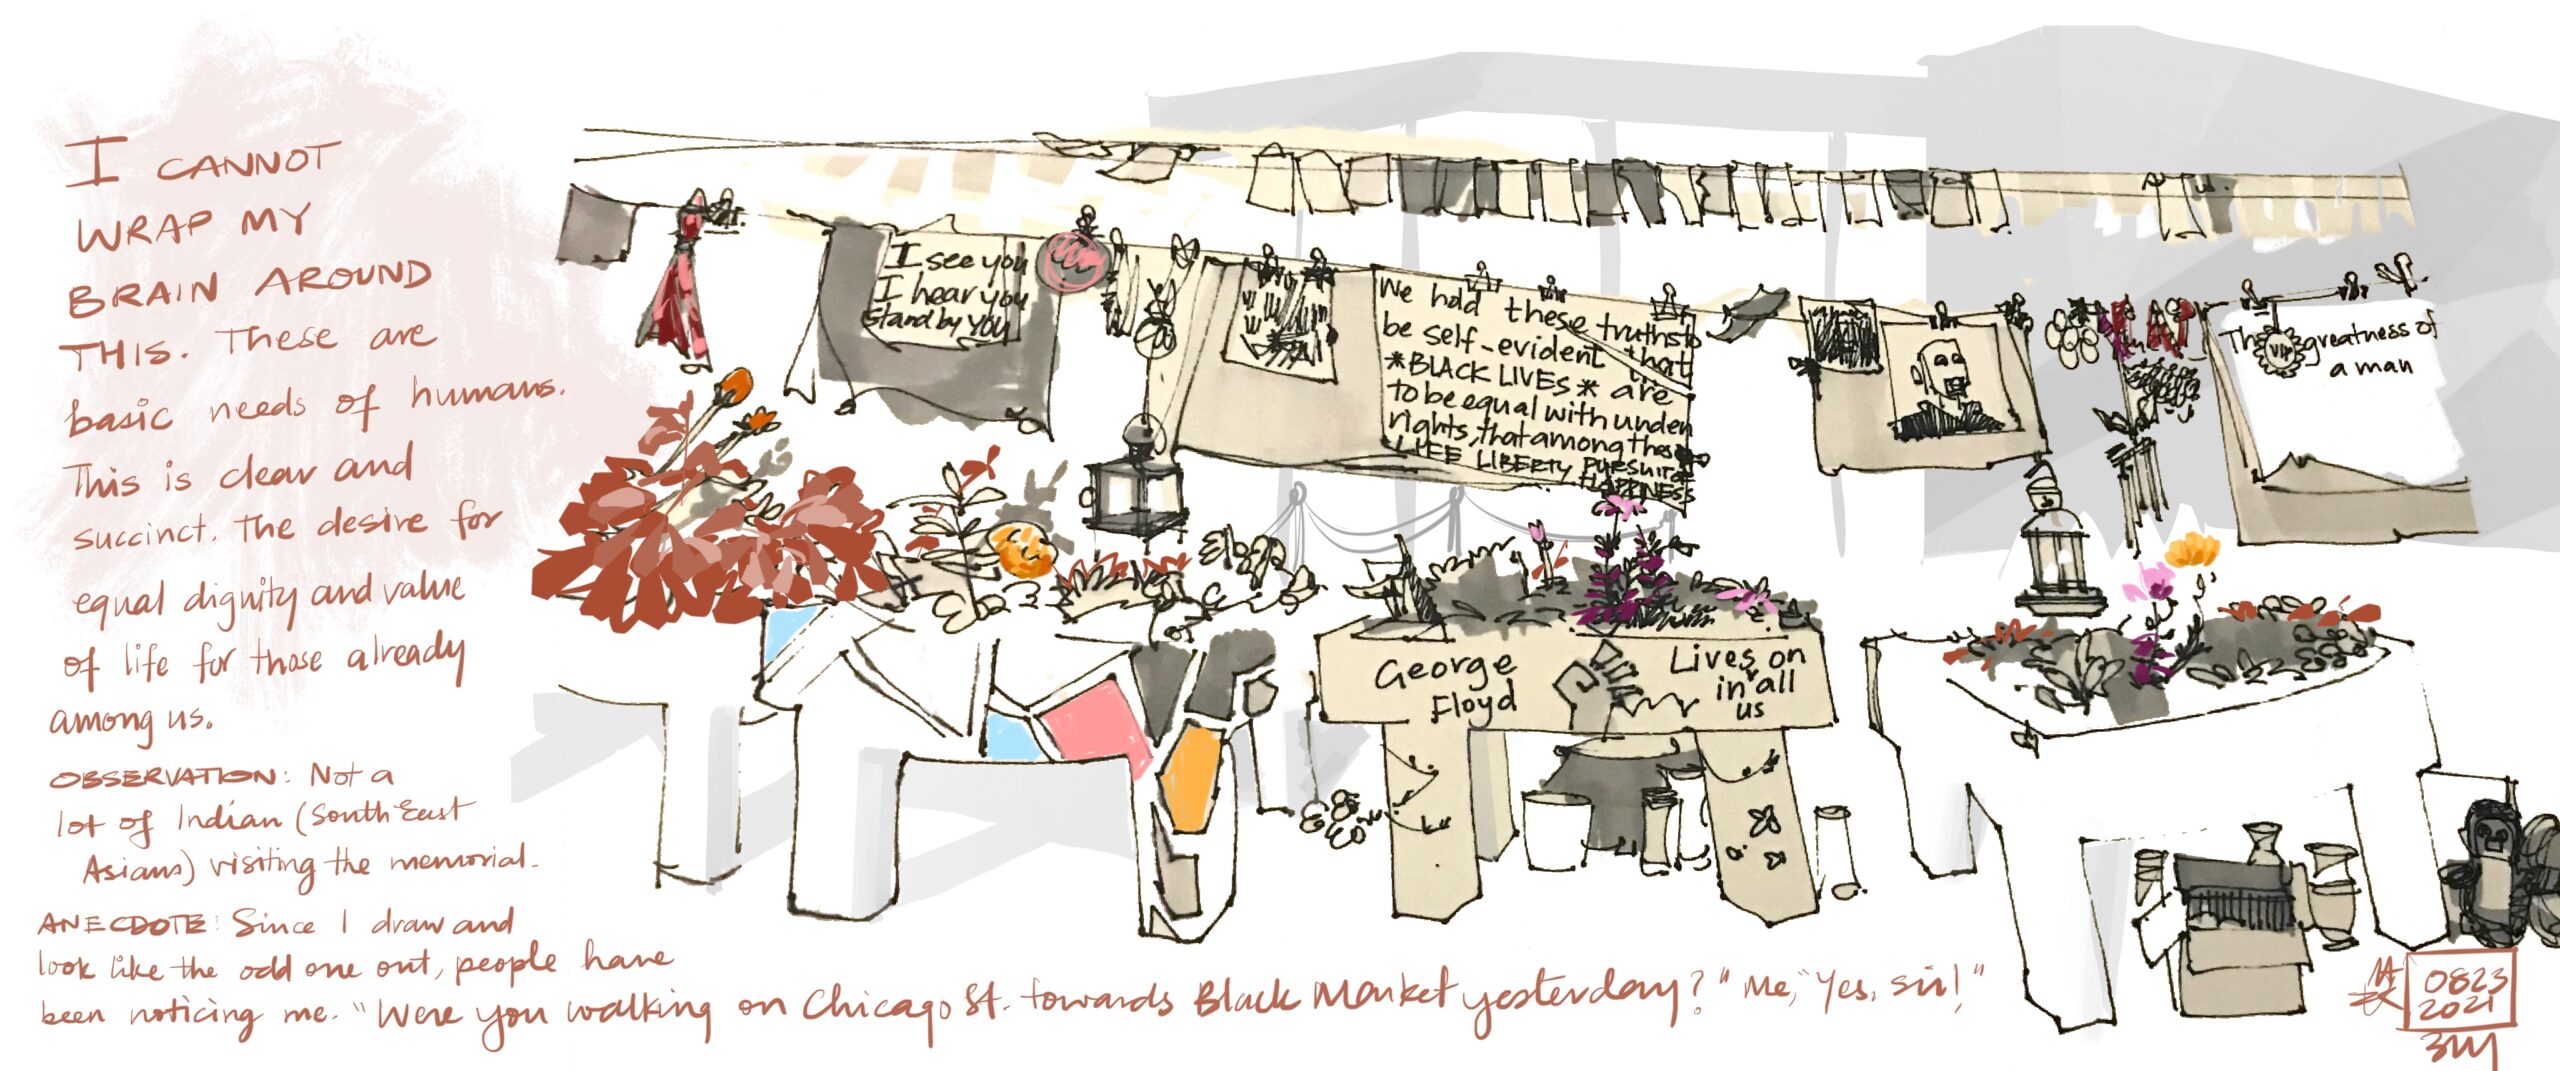 I CANNOT
WRAP MY
BRAIN AROUND
THIS. These are
basic needs of humans.
This is clear and
succinct. The desire for
equal dignity and value
of life for those already
among us.
OBSERVATION: Not a
lot of Indian (South East
Asians) visiting the memorial.
ANECDOTE: Since I draw and
look like the odd one out, people have
been noticing me. "Were you walking on Chicago St. towards Black Market yesterday?" "Me," "Yes, sir!"
I see you
I hear you
Stand by YOU
We hold these truths to
be self-evident that
*BLACK LIVES* are
to be equal with unden
rights, that among thes
LIFE LIBERTY PURSUIT OF
HAPPINESS
The greatness of
a man
VIP
George
Floyd
Lives on
in all
us
0823
2021